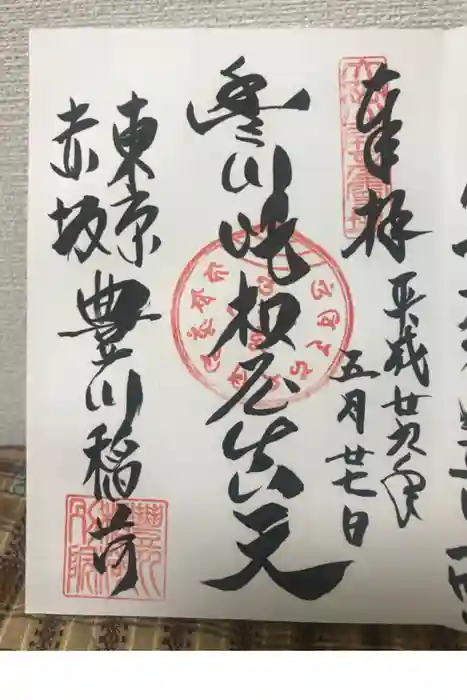 奉拝
平成廿九年
五月廿七日
豊川吒枳尼真天
東京
赤坂
豊川稲荷